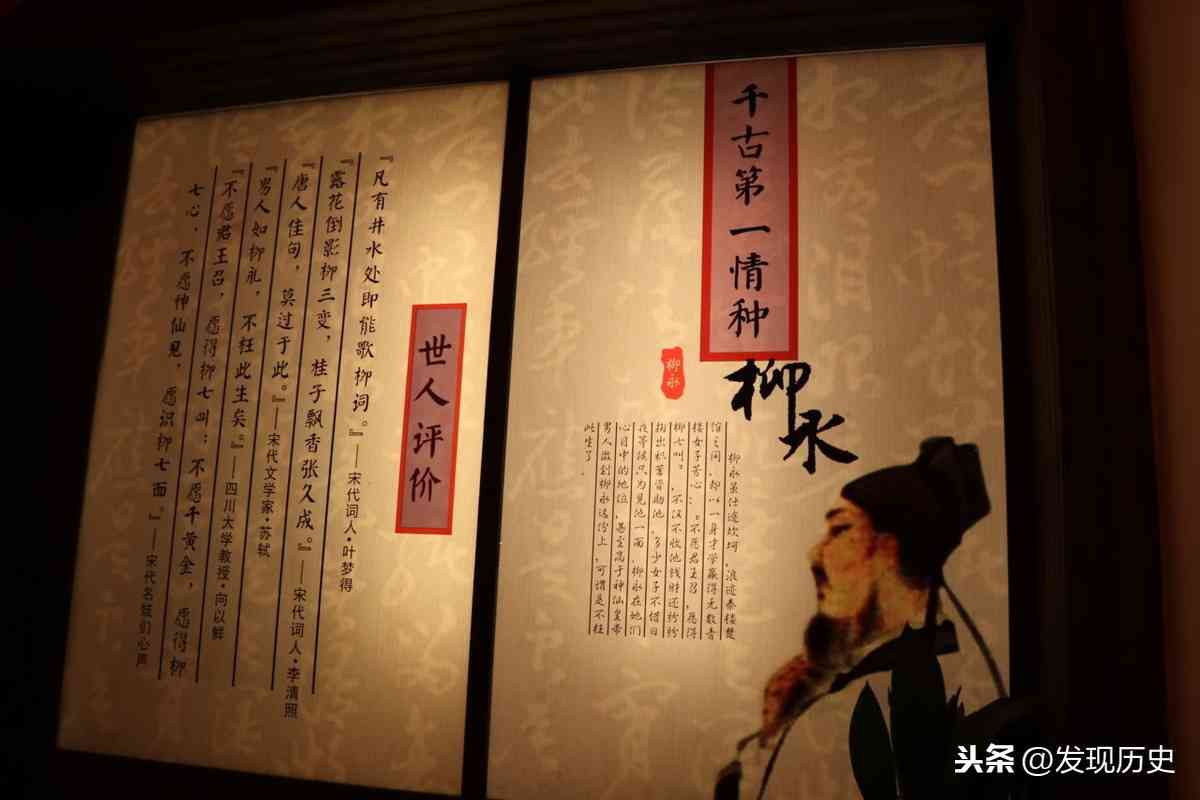 千古第一情种
柳永
柳永
柳永虽仕途坎坷,浪迹秦楼楚
馆之间,却以一身才学赢得无数青
楼女子芳心:“不愿君王召,愿得
柳七叫”,不仅不收他钱财还纷纷
掏出积蓄资助他,多少女子不惜日
夜等候只为见他一面,柳永在她们
心目中的地位,甚至高于神仙皇帝
男人做到柳永这份上,可谓是不枉
此生了.
世人评价
『凡有井水处即能歌柳词。』——宋代词人·叶梦得
『露花倒影柳三变,桂子飘香张久成。』——宋代词人·李清照
『唐人佳句,莫过于此。』——宋代文学家·苏轼
『男人如柳永,不枉此生矣。』——四川大学教授·向以鲜
『不愿君王召,愿得柳七叫;不愿千黄金,愿得柳
七心,不愿神仙见,愿识柳七面。』——宋代名妓们心声
头条 @发现历史